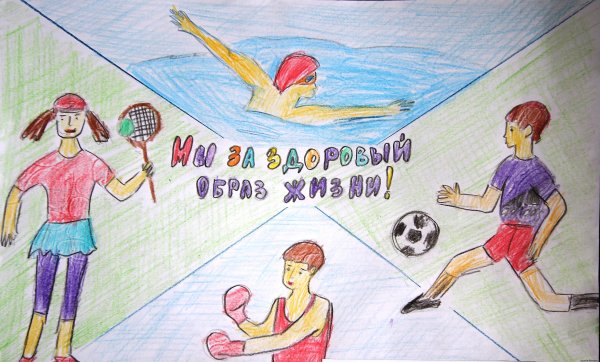 Мы за здоровый
образ жизни!